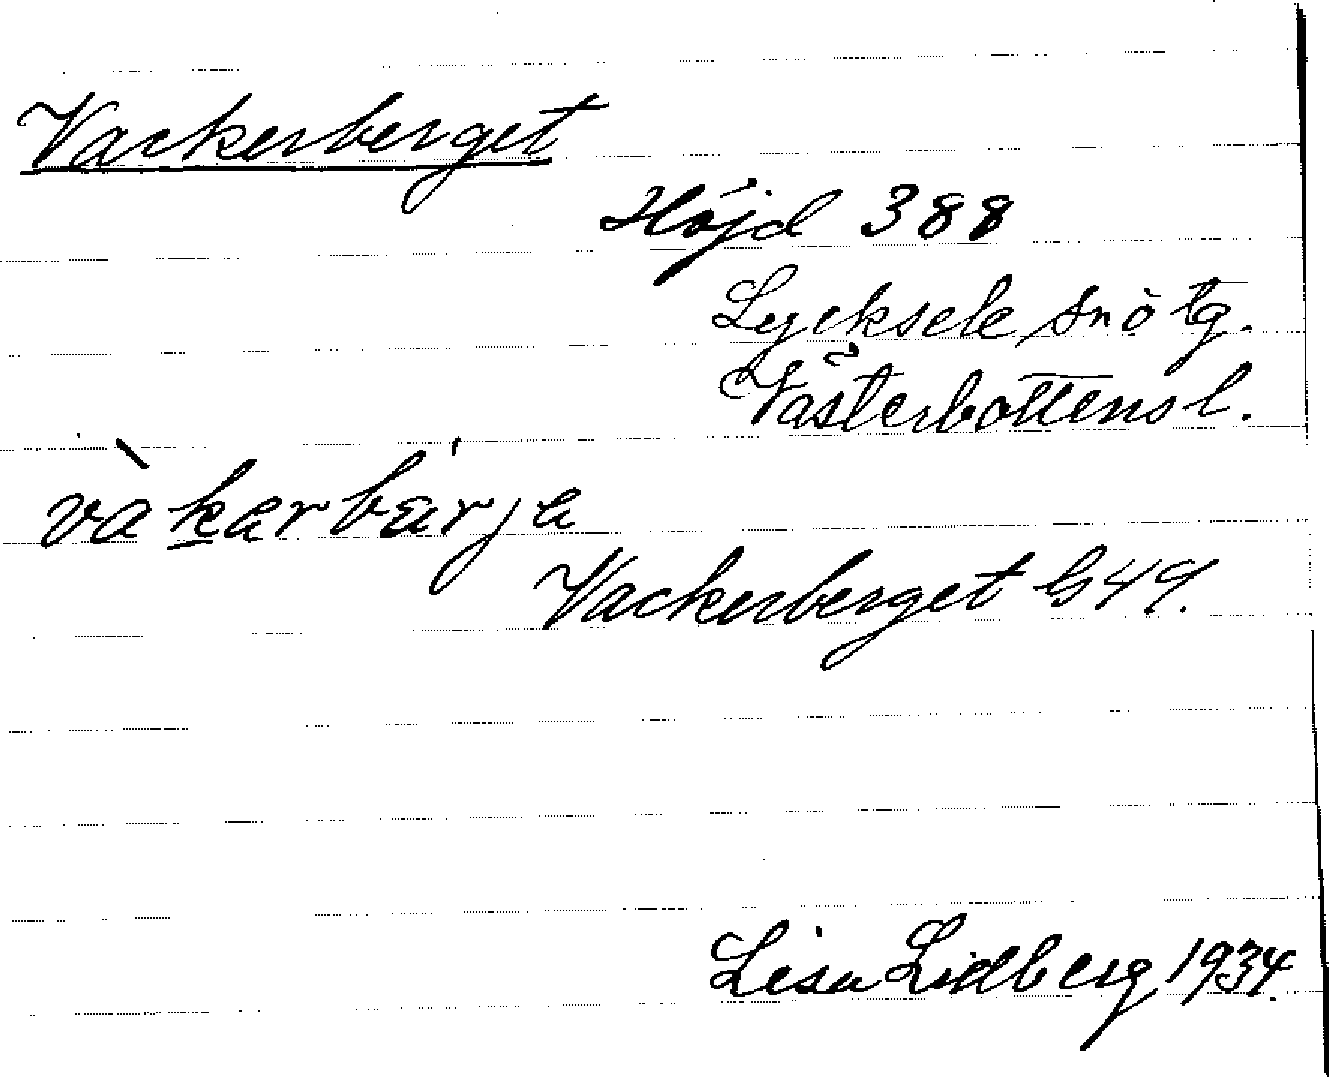 Vackerberget
Höjd 388
Lycksele snötg.
Västerbottens l.
vàkarbärja
Vackerberget G49.
Lisa Lidberg 1934.